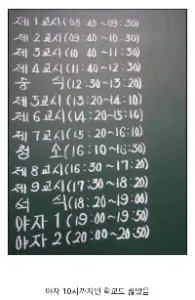 제 1 교시 (08:40~09:30)
제 2 교시 (09:40~10:30)
제 3 교시 (10:40~11:30)
제 4 교시 (11:40~12:30)
중 식 (12:30~13:20)
제 5 교시 (13:20~14:10)
제 6 교시 (14:20~15:10)
제 7 교시 (15:20~16:10)
청 소 (16:10~16:30)
제 8 교시 (16:30~17:20)
제 9 교시 (17:30~18:20)
석 식 (18:20~19:00)
야자 1 (19:00~19:50)
야자 2 (20:00~20:50)
야자 10시까지인 학교도 많았음